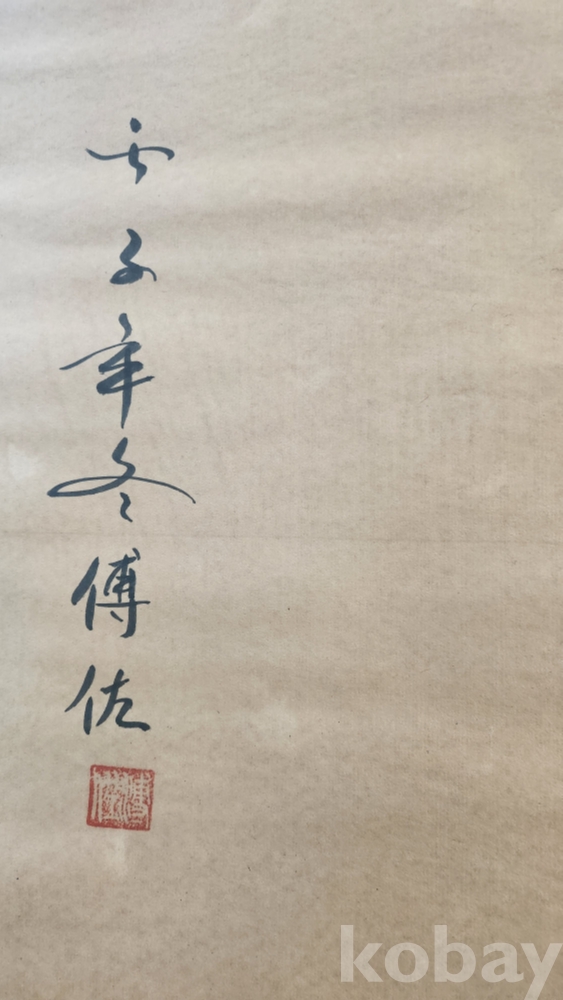 丙子年冬傅佐
kobay